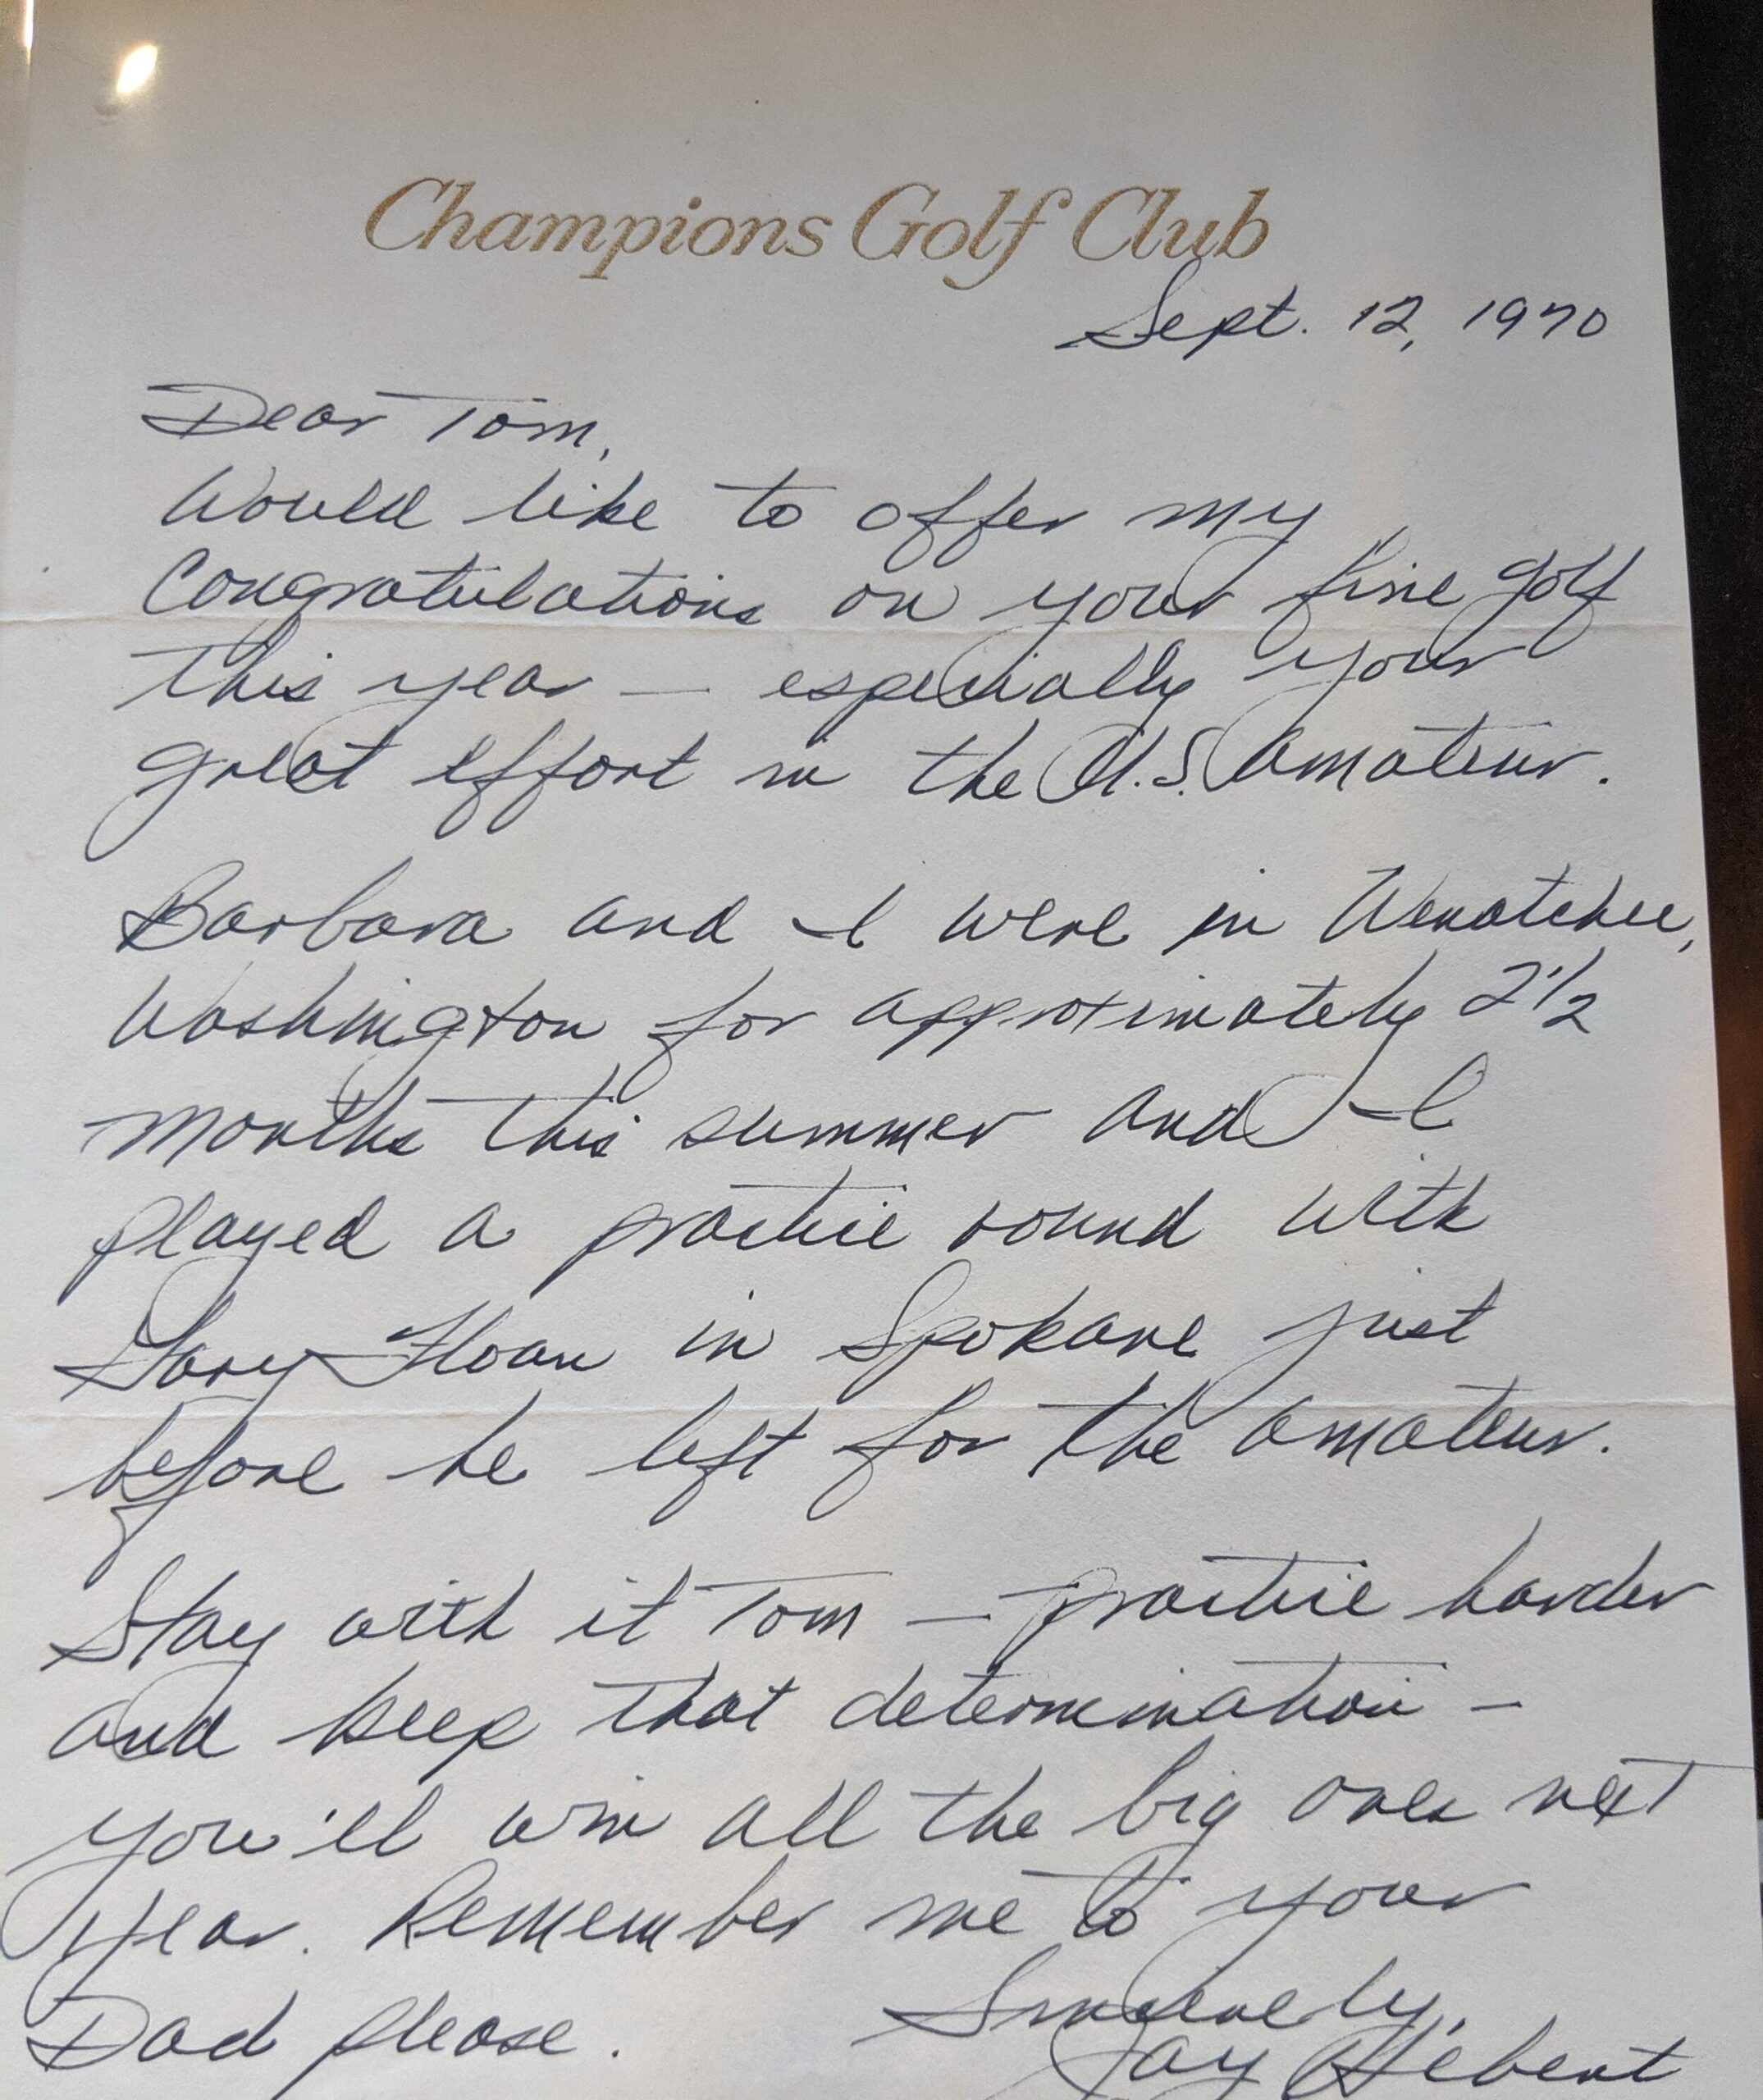 Champions Golf Club
Sept. 12, 1970
Dear Tom,
Would like to offer my
Congratulations on your fine golf
this year — especially your
great effort in the U.S. Amateur.
Barbara and I were in Wenatchee,
Washington for approximately 2 1/2
months this summer and I
played a practice round with
Gary Floan in Spokane just
before he left for the Amateur.
Stay with it Tom — practice harder
and keep that determination –
you'll win all the big ones next
year. Remember me to your
Dad please.
Sincerely,
Jay Hebert